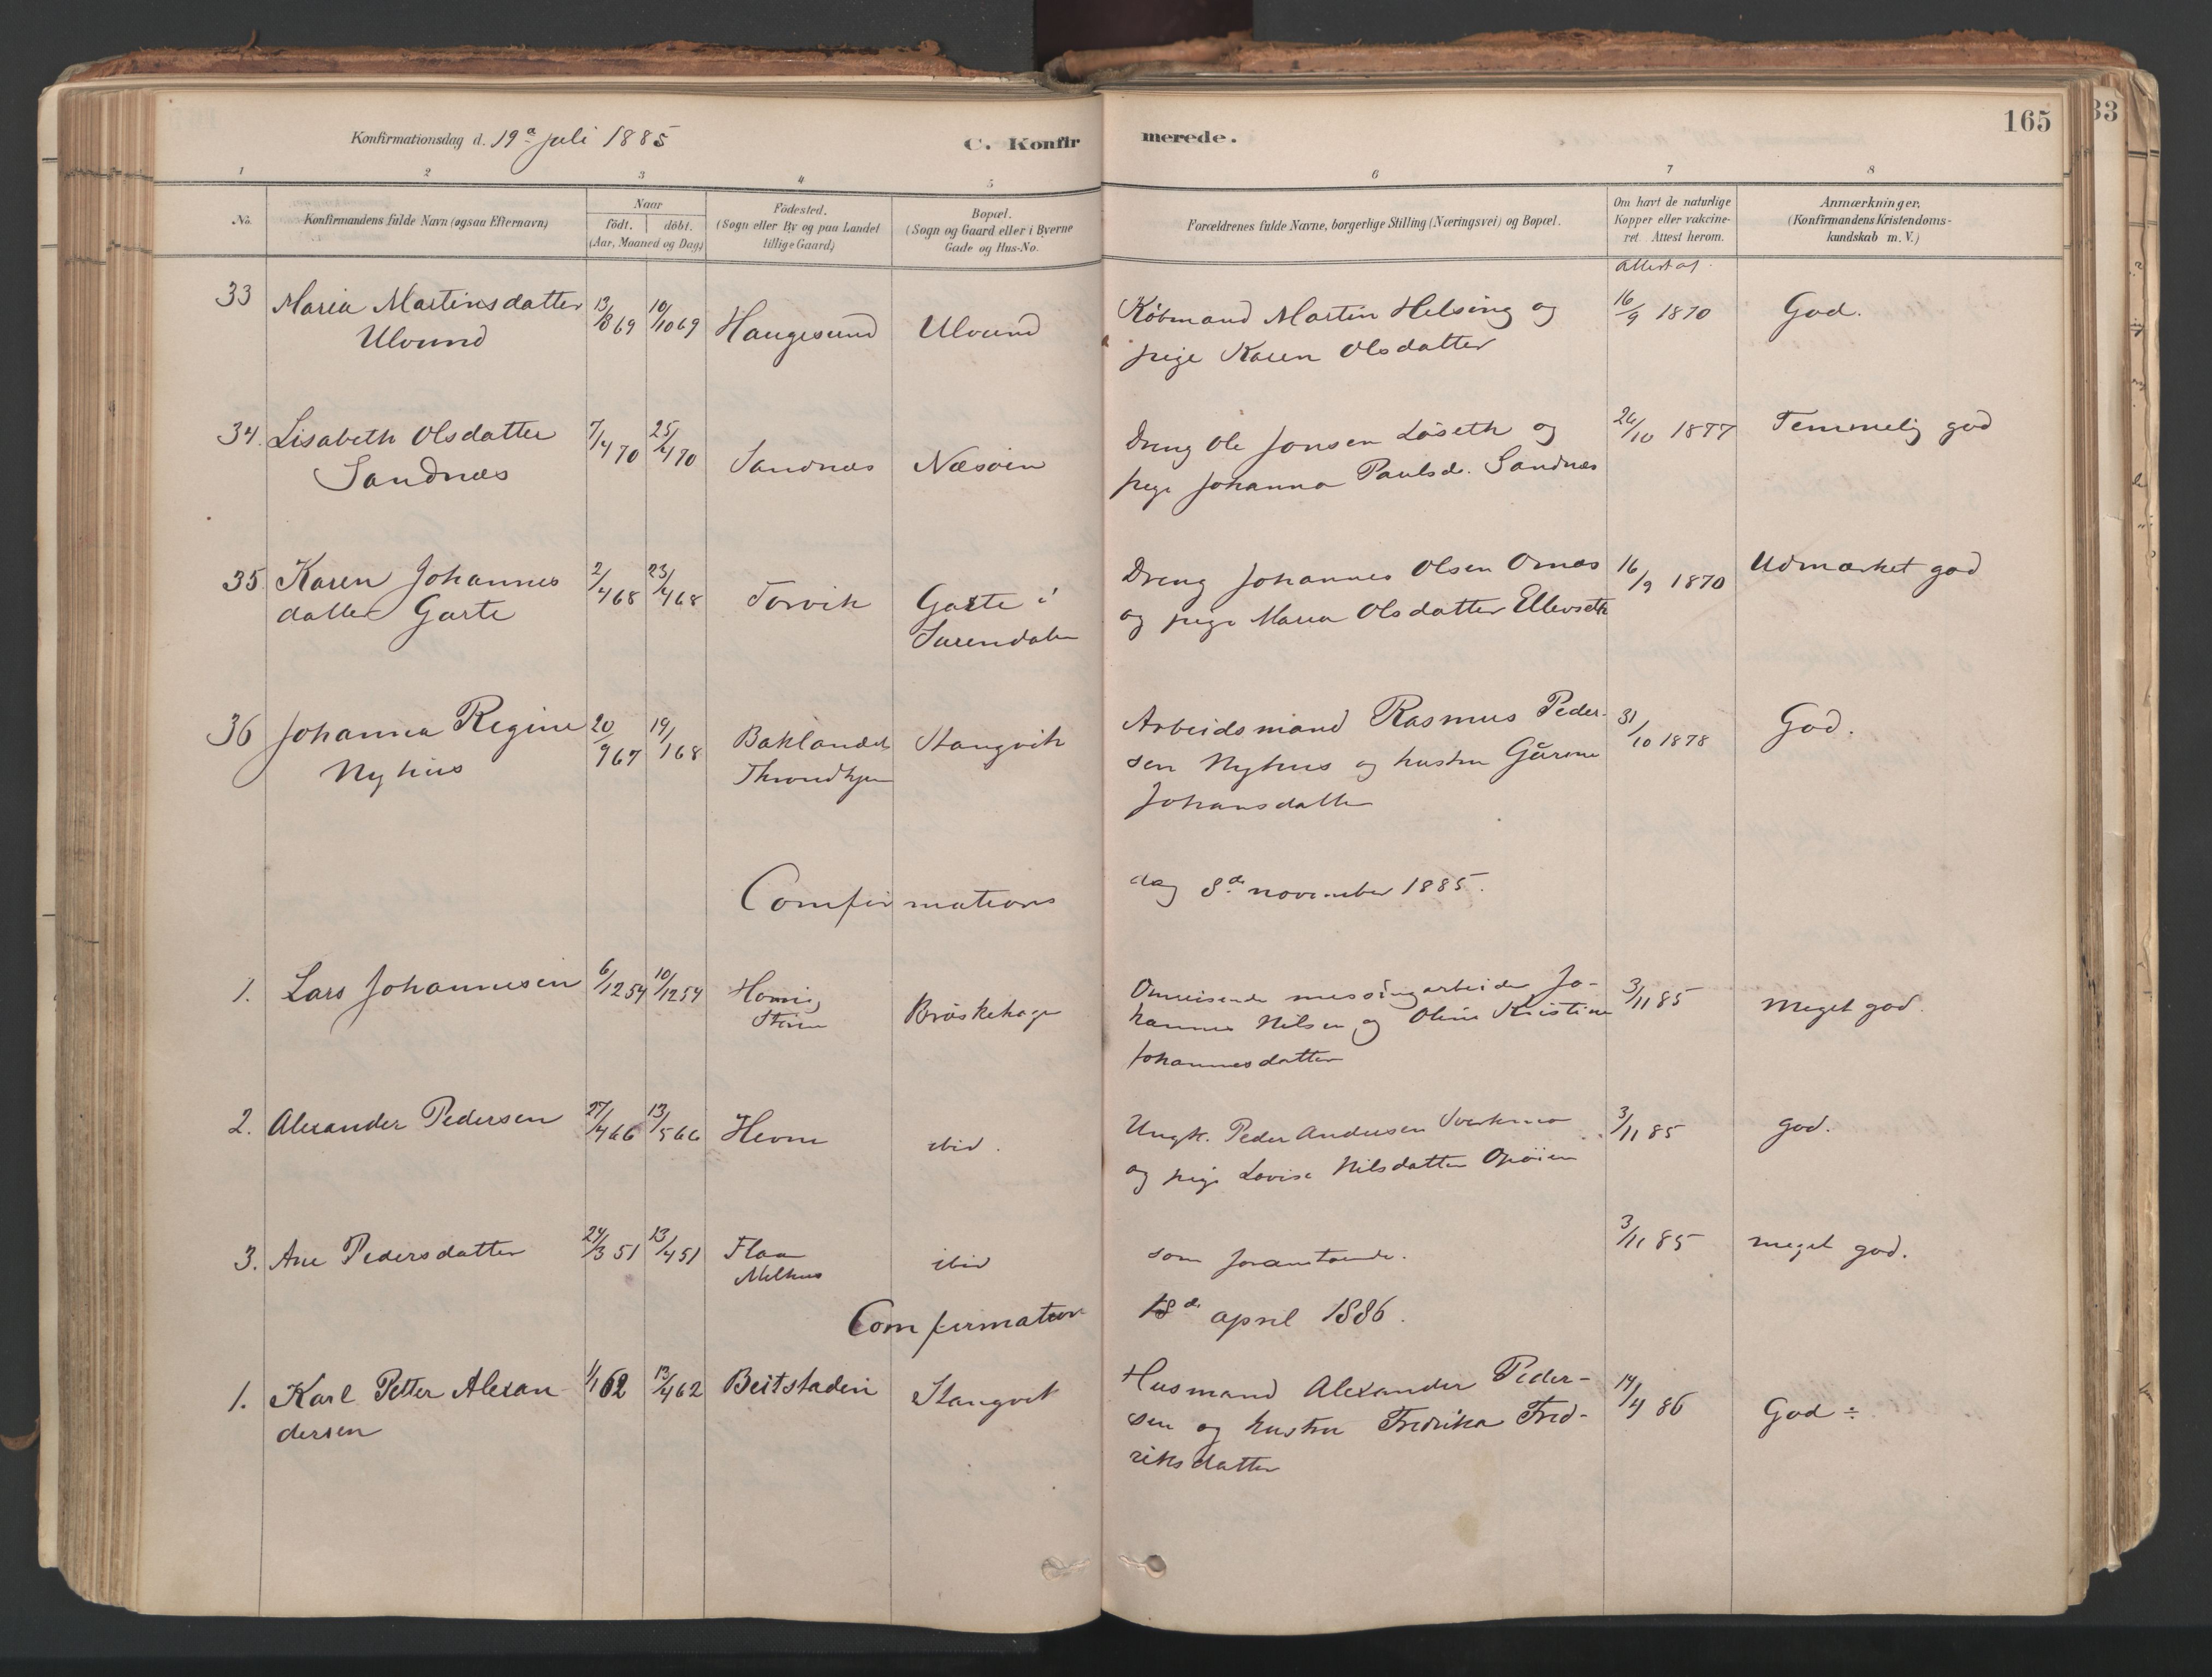 165
33
Konfirmationsdag d. 19de juli 1885
C. Konfir merede.
1 2 3 4 5 6 7 8
No. Konfirmandens fulde Navn (ogsaa Efternavn)
Naar
födt. döbt.
(Aar, Maaned og Dag)
Födested.
(Sogn eller By og paa Landet
tillige Gaard)
Bopæl.
(Sogn og Gaard eller i Byerne
Gade og Hus-No.
Forældrenes fulde Navne, borgerlige Stilling (Næringsvei) og Bopæl.
Om havt de naturlige
Kopper eller vakcine-
ret. Attest herom.
Anmærkninger.
(Konfirmandens Kristendoms-
kundskab m. V.)
Attest af
33 Maria Martinsdatter 13/8 69 10/10 69 Haugesund Ulvund Købmand Martin Helsing og 16/9 1870 God.
Ulvund pige Karen Olsdatter
34. Lisabeth Olsdatter 7/4 70 25/4 70 Sandnæs Næsøien Dreng Ole Jonsen Løseth og 26/10 1877 Temmelig god
Sandnæs pige Johanna Paulsd. Sandnæs
35. Karen Johannes 2/4 68 23/4 68 Torvik Garte i Dreng Johannes Olsen Ornæs 16/9 1870 Udmærket god
datter Garte Surendalen og pige Maria Olsdatter Ellevseth
36 Johanna Regine 20/9 67 19/1 68 Baklandet Stangvik Arbeidsmand Rasmus Peder- 31/10 1878 God.
Nyhus Throndhjem sen Nyhus og hustru Gurine
Johansdatter
Comfirmations dag 8de november 1885.
1. Lars Johannesen 6/12 54 10/12 54 Brøskehage Omreisende messingarbeider Jo- 3/11 85 Meget god.
Støren hannes Nilsen og Oline Kristine
Johannesdatter
2. Alexander Pedersen 27/4 66 13/5 66 Hevne ibid. Ungk. Peder Andersen 3/11 85 god.
og pige Lovise Nilsdatter Opøien
3. Ane Pedersdatter 24/3 51 13/4 51 Flaa ibid som foranstaaende. 3/11 85 meget god.
Melhus
Comfirmation 18de april 1886.
1. Karl Petter Alexan- 1/1 62 13/4 62 Beitstaden Stangvik Husmand Alexander Peder- 14/4 86 God ÷
dersen sen og hustru Fredrika Fred-
riksdatter